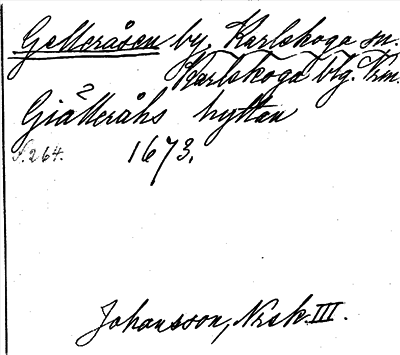 Gelleråsen by, Karlskoga sn.
Karlskoga btg. Vrm.
Giälleråhs hyttan
S. 264. 1673.
Johansson, Nrsk III.